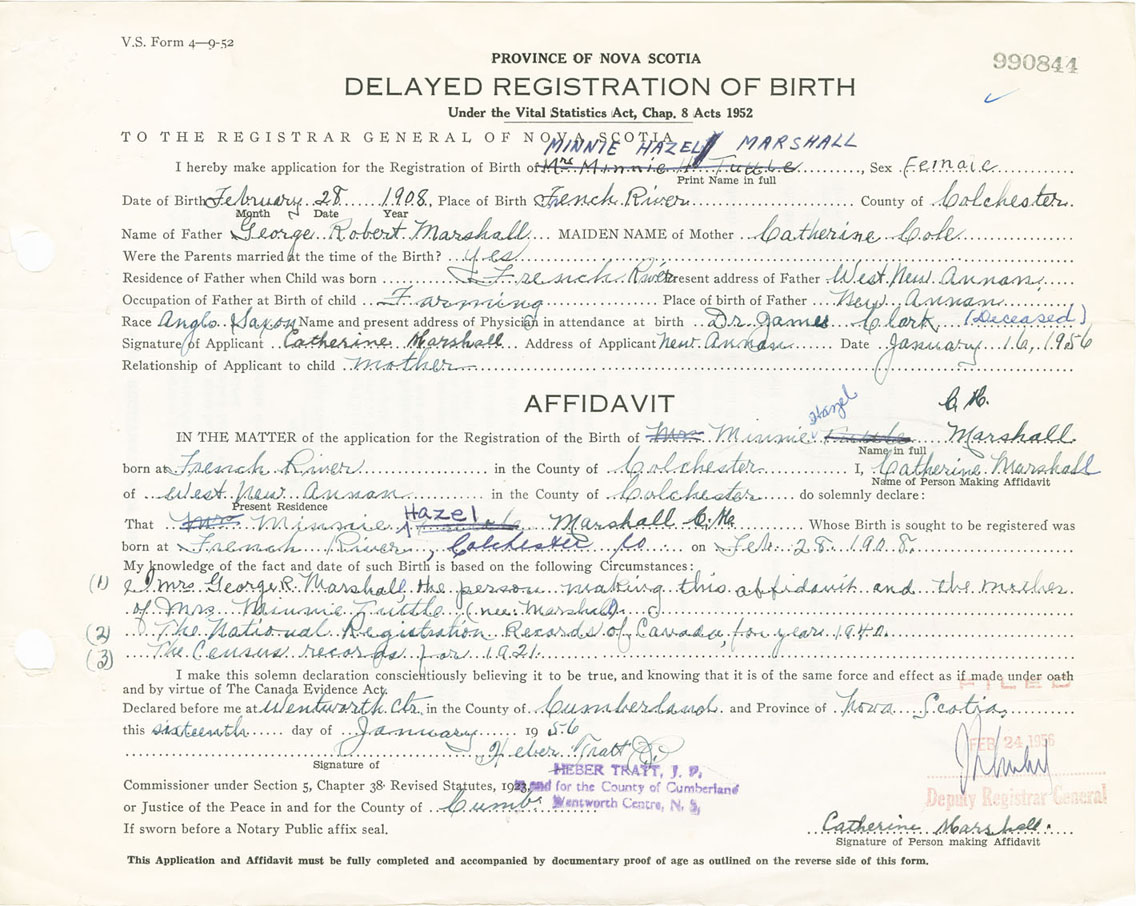 V.S. Form 4—9-52
PROVINCE OF NOVA SCOTIA
990844
DELAYED REGISTRATION OF BIRTH
Under the Vital Statistics Act, Chap. 8 Acts 1952
TO THE REGISTRAR GENERAL OF NOVA SCOTIA
MINNIE HAZEL MARSHALL
I hereby make application for the Registration of Birth of Mrs Minnie H. Tuttle, Sex Female
Print Name in full
Date of Birth February 28 1908, Place of Birth French River County of Colchester
Month Date Year
Name of Father George Robert Marshall MAIDEN NAME of Mother Catherine Cole
Were the Parents married at the time of the Birth? yes
Residence of Father when Child was born French River Present address of Father West New Annan
Occupation of Father at Birth of child Farming Place of birth of Father New Annan
Race Anglo Saxon Name and present address of Physician in attendance at birth Dr. James Clark (Deceased)
Signature of Applicant Catherine Marshall Address of Applicant New Annan Date January 16, 1956
Relationship of Applicant to child mother
AFFIDAVIT
Hazel C. M.
IN THE MATTER of the application for the Registration of the Birth of Mrs Minnie Tuttle Marshall
Name in full
born at French River in the County of Colchester I, Catherine Marshall
Name of Person Making Affidavit
of West New Annan in the County of Colchester do solemnly declare:
Present Residence
Hazel
That Mrs Minnie Marshall C. M. Whose Birth is sought to be registered was
born at French River, Colchester Co. on Feb. 28 1908.
My knowledge of the fact and date of such Birth is based on the following Circumstances:
(1) I Mrs George R. Marshall, the person making this affidavit and the mother
of Mrs. Minnie Tuttle (nee Marshall).
(2) The National Registration Records of Canada, for year 1940.
(3) The Census records for 1921.
I make this solemn declaration conscientiously believing it to be true, and knowing that it is of the same force and effect as if made under oath
and by virtue of The Canada Evidence Act.
FILED
Declared before me at Wentworth Ctr. in the County of Cumberland and Province of Nova Scotia,
this sixteenth day of January 1956
FEB 24 1956
Heber Tratt J.P.
Signature of
HEBER TRATT, J. P.
Commissioner under Section 5, Chapter 38 Revised Statutes, 1923,
and for the County of Cumberland
Deputy Registrar General
or Justice of the Peace in and for the County of Cumb.
Wentworth Centre, N. S.
If sworn before a Notary Public affix seal.
Catherine Marshall.
Signature of Person making Affidavit
This Application and Affidavit must be fully completed and accompanied by documentary proof of age as outlined on the reverse side of this form.